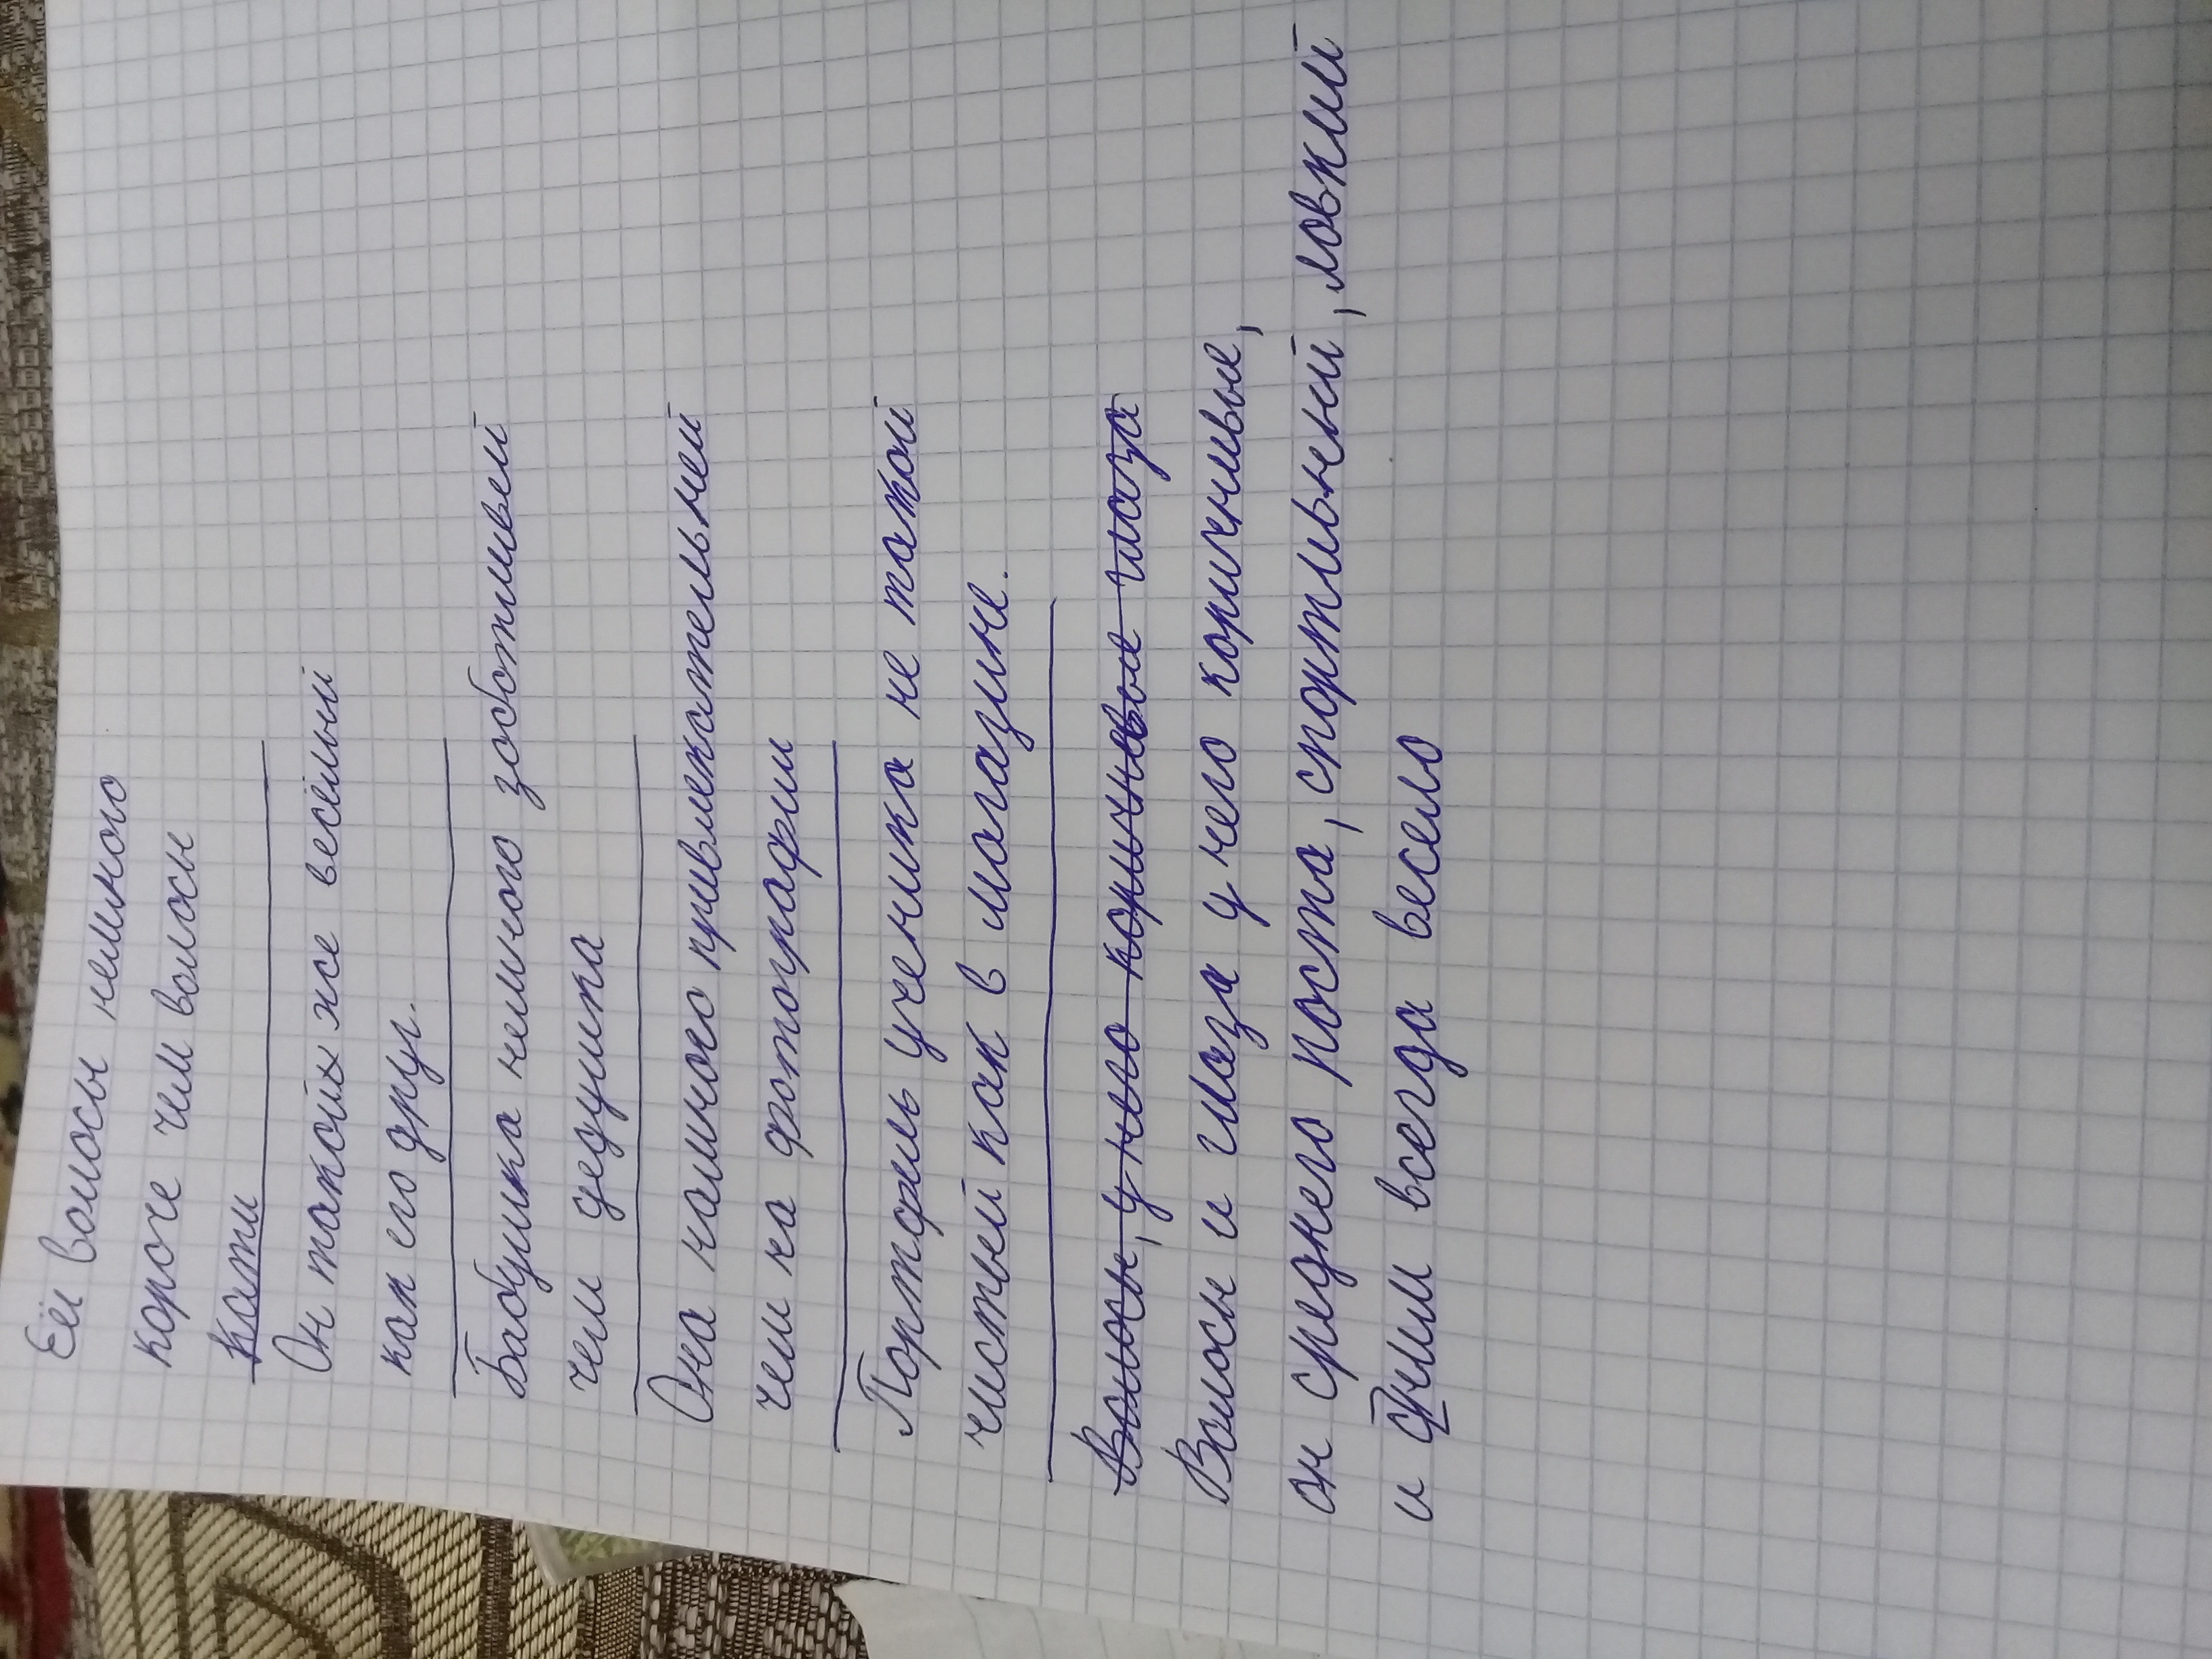 Её волосы немного
короче чем волосы
Кати
Он такой же весёлый
как его друг.
Бабушка немного заботливей
чем дедушка
Она намного привлекательней
чем на фотографии
Портфель ученика не такой
чистый как в магазине.
Волосы, у него коричневые глаза
Волосы и глаза у него коричневые,
он среднего роста, спортивный, ловкий
и с ним всегда весело